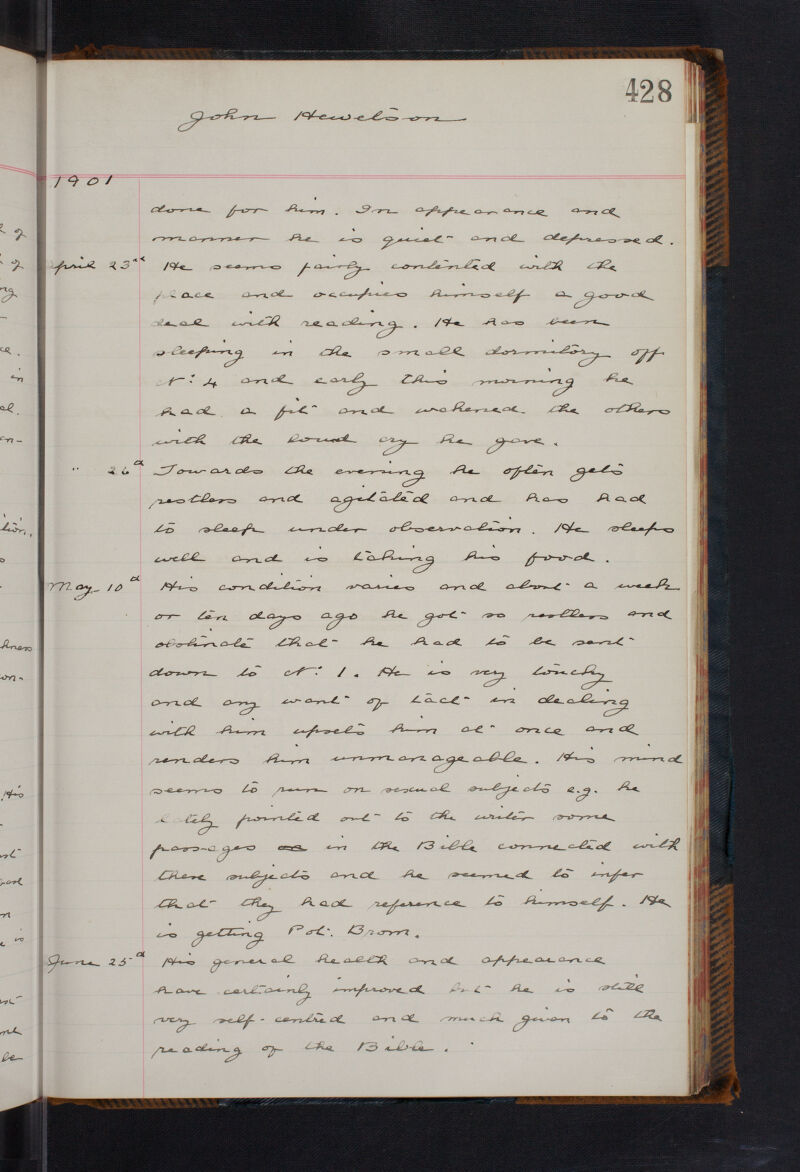 428
John Hewetson
1901
done for him. In appearance and
manner he is quiet and depressed.
April 23rd He seems fairly contented with the
place and occupies himself a good
deal with reading. He has been
sleeping in the small dormitory off
No: 4 and early this morning he
had a fit and wakened the others
with the loud cry he gave.
" 26th Towards the evening he often gets
restless and agitated and has had
to sleep under observation. He sleeps
well and is taking his food.
May 10th His condition varies and about a week
or ten days ago he got so restless and
obstinate that he had to be sent
down to No: 1. He is very touchy
and any want of tact in dealing
with him upsets him at once and
renders him unmanageable. His mind
seems to run on sexual subjects e.g. he
lately pointed out to the writer some
passages in the Bible connected with
these subjects and he seemed to infer
that they had reference to himself. He
is getting Pot. Brom.
June 25th His general health and appearance
have certainly improved but he is still
very self-centred and much given to the
reading of the Bible.